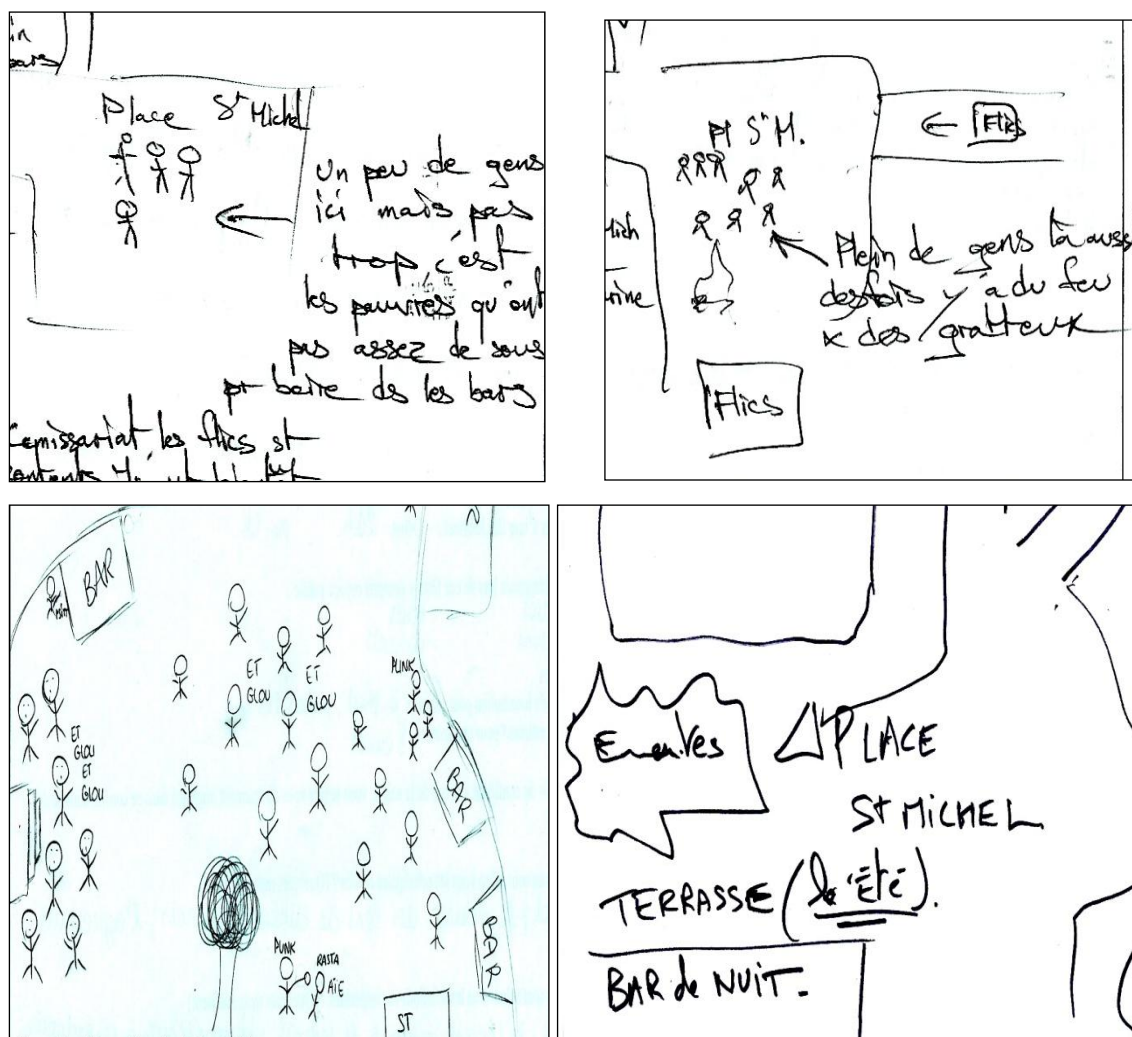 in
bars
Place St Michel
Un peu de gens
ici mais pas
trop c'est
les pauvres qu'ont
pas assez de sous
pr boire ds les bars
les flics st
Pl St M.
Flics
Plein de gens là auss
desfois y a du feu
des gratteux
Flics
BAR
ET
GLOU
ET
GLOU
PUNK
ET
GLOU
ET
GLOU
BAR
BAR
PUNK
RASTA
AïE
ST
Emeutes
PLACE
St MICHEL
TERRASSE (l'Eté).
BAR de NUIT.